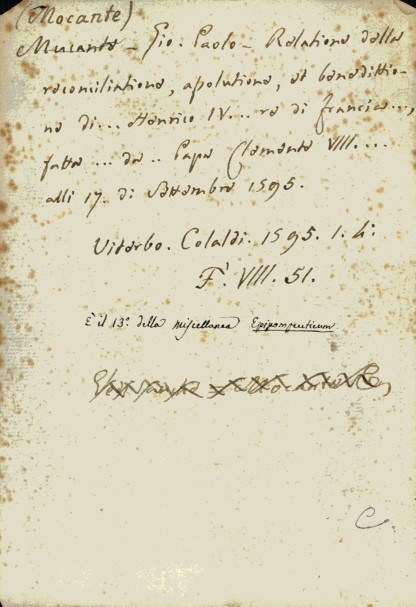 (Mocante)
Mucante - Gio: Paolo - Relatione della
reconciliatione, assolutione, et benedittio-
ne di... Henrico IV... re di francia...,
fatta ... da .. Papa Clemente VIII....
alli 17. di Settembre 1595.
Viterbo. Colaldi. 1595. 1. 4:
F. VIII. 51.
È il 13.° della miscellanea Epipompeuticum
C.